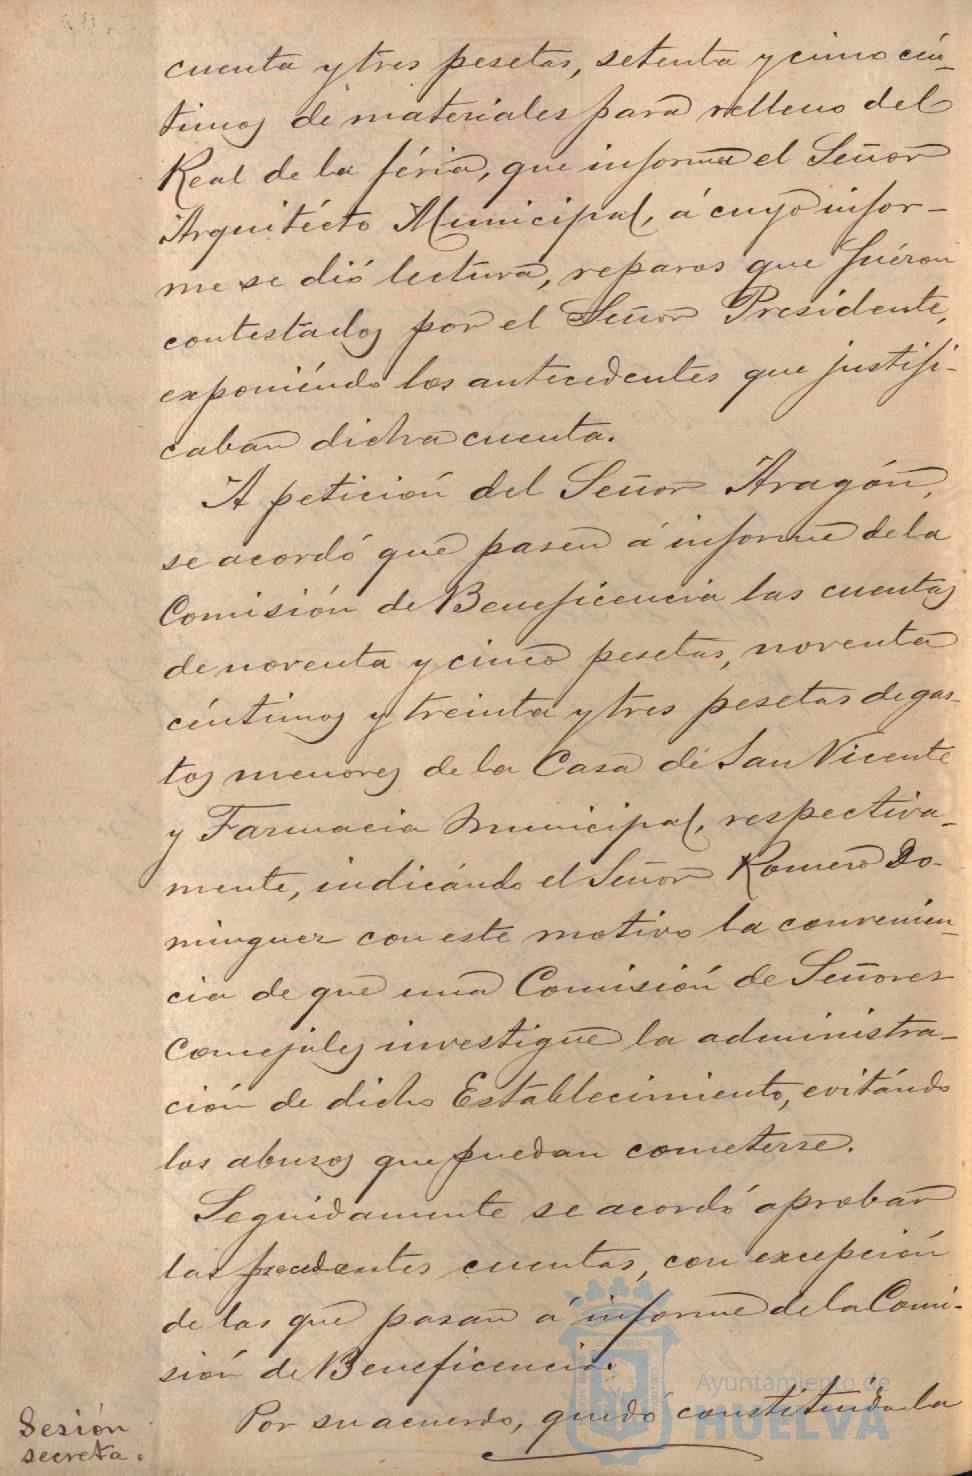 cuenta y tres pesetas, setenta y cinco cén-
timos de materiales para relleno del
Real de la féria, que informa el Señor
Arquitécto Municipal, á cuyo infor-
me se dió lectura, reparos que fuéron
contestados por el Señor Presidente,
exponiéndo los antecedentes que justifi-
caban dicha cuenta.
A petición del Señor Aragón,
se acordó que pasen á informe de la
Comisión de Beneficencia las cuentas
de noventa y cinco pesetas, noventa
céntimos y treinta y tres pesetas de gas-
tos menores de la Casa de San Vicente
y Farmacia Municipal, respectiva-
mente, indicándo el Señor Romero Do-
minguez con este motivo la convenien-
cia de que una Comisión de Señores
Concejales investigue la administra-
ción de dicho Establecimiento, evitándo
los abusos que puedan cometerse.
Seguidamente se acordó aprobar
las precedentes cuentas, con excepción
de las que pasan á informe de la Comi-
sión de Beneficencia.
Sesión secreta.
Por su acuerdo, quedó constituida la
Ayuntamiento de
HUELVA